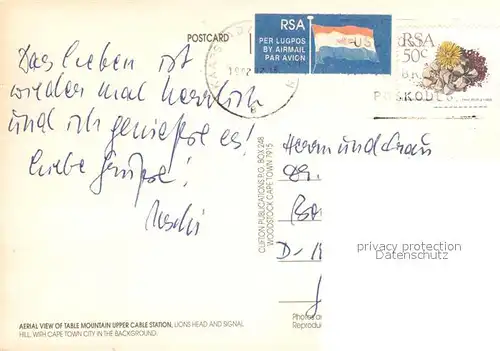 POSTCARD
RSA
PER LUGPOS
BY AIRMAIL
PAR AVION
RSA
50c
Das Leben ist
wieder mal herrlich
und ich genieße es!
Liebe Grüße!
Uschi
CLIFTON PUBLICATIONS P.O. BOX 248
WOODSTOCK CAPE TOWN 7915
Herrn und Frau
D-
privacy protection
Datenschutz
AERIAL VIEW OF TABLE MOUNTAIN UPPER CABLE STATION, LIONS HEAD AND SIGNAL
HILL, WITH CAPE TOWN CITY IN THE BACKGROUND.
Reproduc